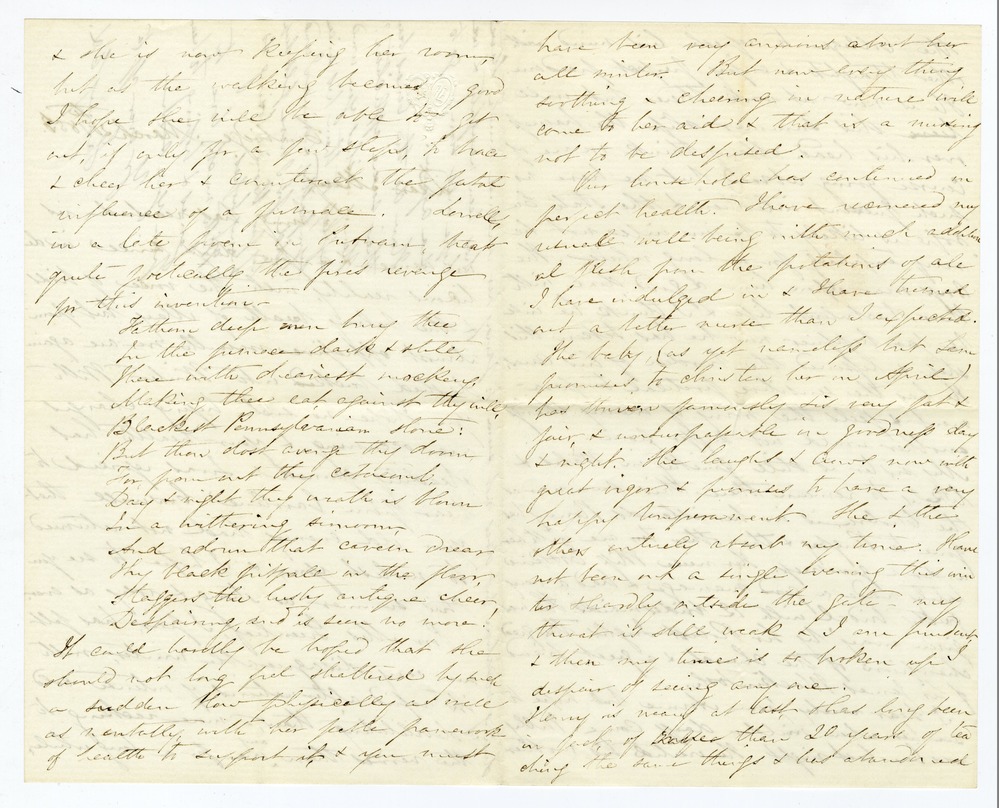 & she is now keeping her room,
but as the walking becomes good
I hope she will be able to get
out, if only for a few steps, to brace
& cheer her & counteract the fatal
influence of a furnace. Lowell,
in a late poem in Putnam treats
quite poetically the fires revenge
for this invention—
Fathom deep men bury thee
In the furnace dark & still,
There with dreariest mockery,
Making thee eat against thy will,
Blackest Pennsylvanian stone:
But thou dost avenge thy doom
For from out thy catacomb,
Day & night thy wrath is blown
In a withering simoom,
And adown that cavern drear
Thy black pitfall in the floor,
Staggers the lusty antique cheer,
Despairing, and is seen no more.
It could hardly be hoped that she
should not long feel shattered by such
a sudden blow physically as well
as mentally, with her feeble framework
of health to support it & you must
have been very anxious about her
all winter. But now every thing
soothing & cheering in nature will
come to her aid & that is a nursing
not to be despised.
Our household has continued in
perfect health. I have recovered my
usual well being with much addition
al flesh from the potations of ale
I have indulged in & I have turned
out a better nurse than I expected.
The baby (as yet nameless but Sam
promises to christen her in April)
has thriven famously & is very fat &
fair, & unsurpassable in goodness day
& night. She laughs & crows now with
great vigor & promises to have a very
happy temperament. She & the
others entirely absorb my time. I have
not been out a single evening this win
ter & hardly outside the gate— my
throat is still weak & I am prudent
& then my time is so broken up I
despair of seeing any one.
Henry is weary at last & has long been
in fact, of more than 20 years of tea
ching the same things & has abandoned